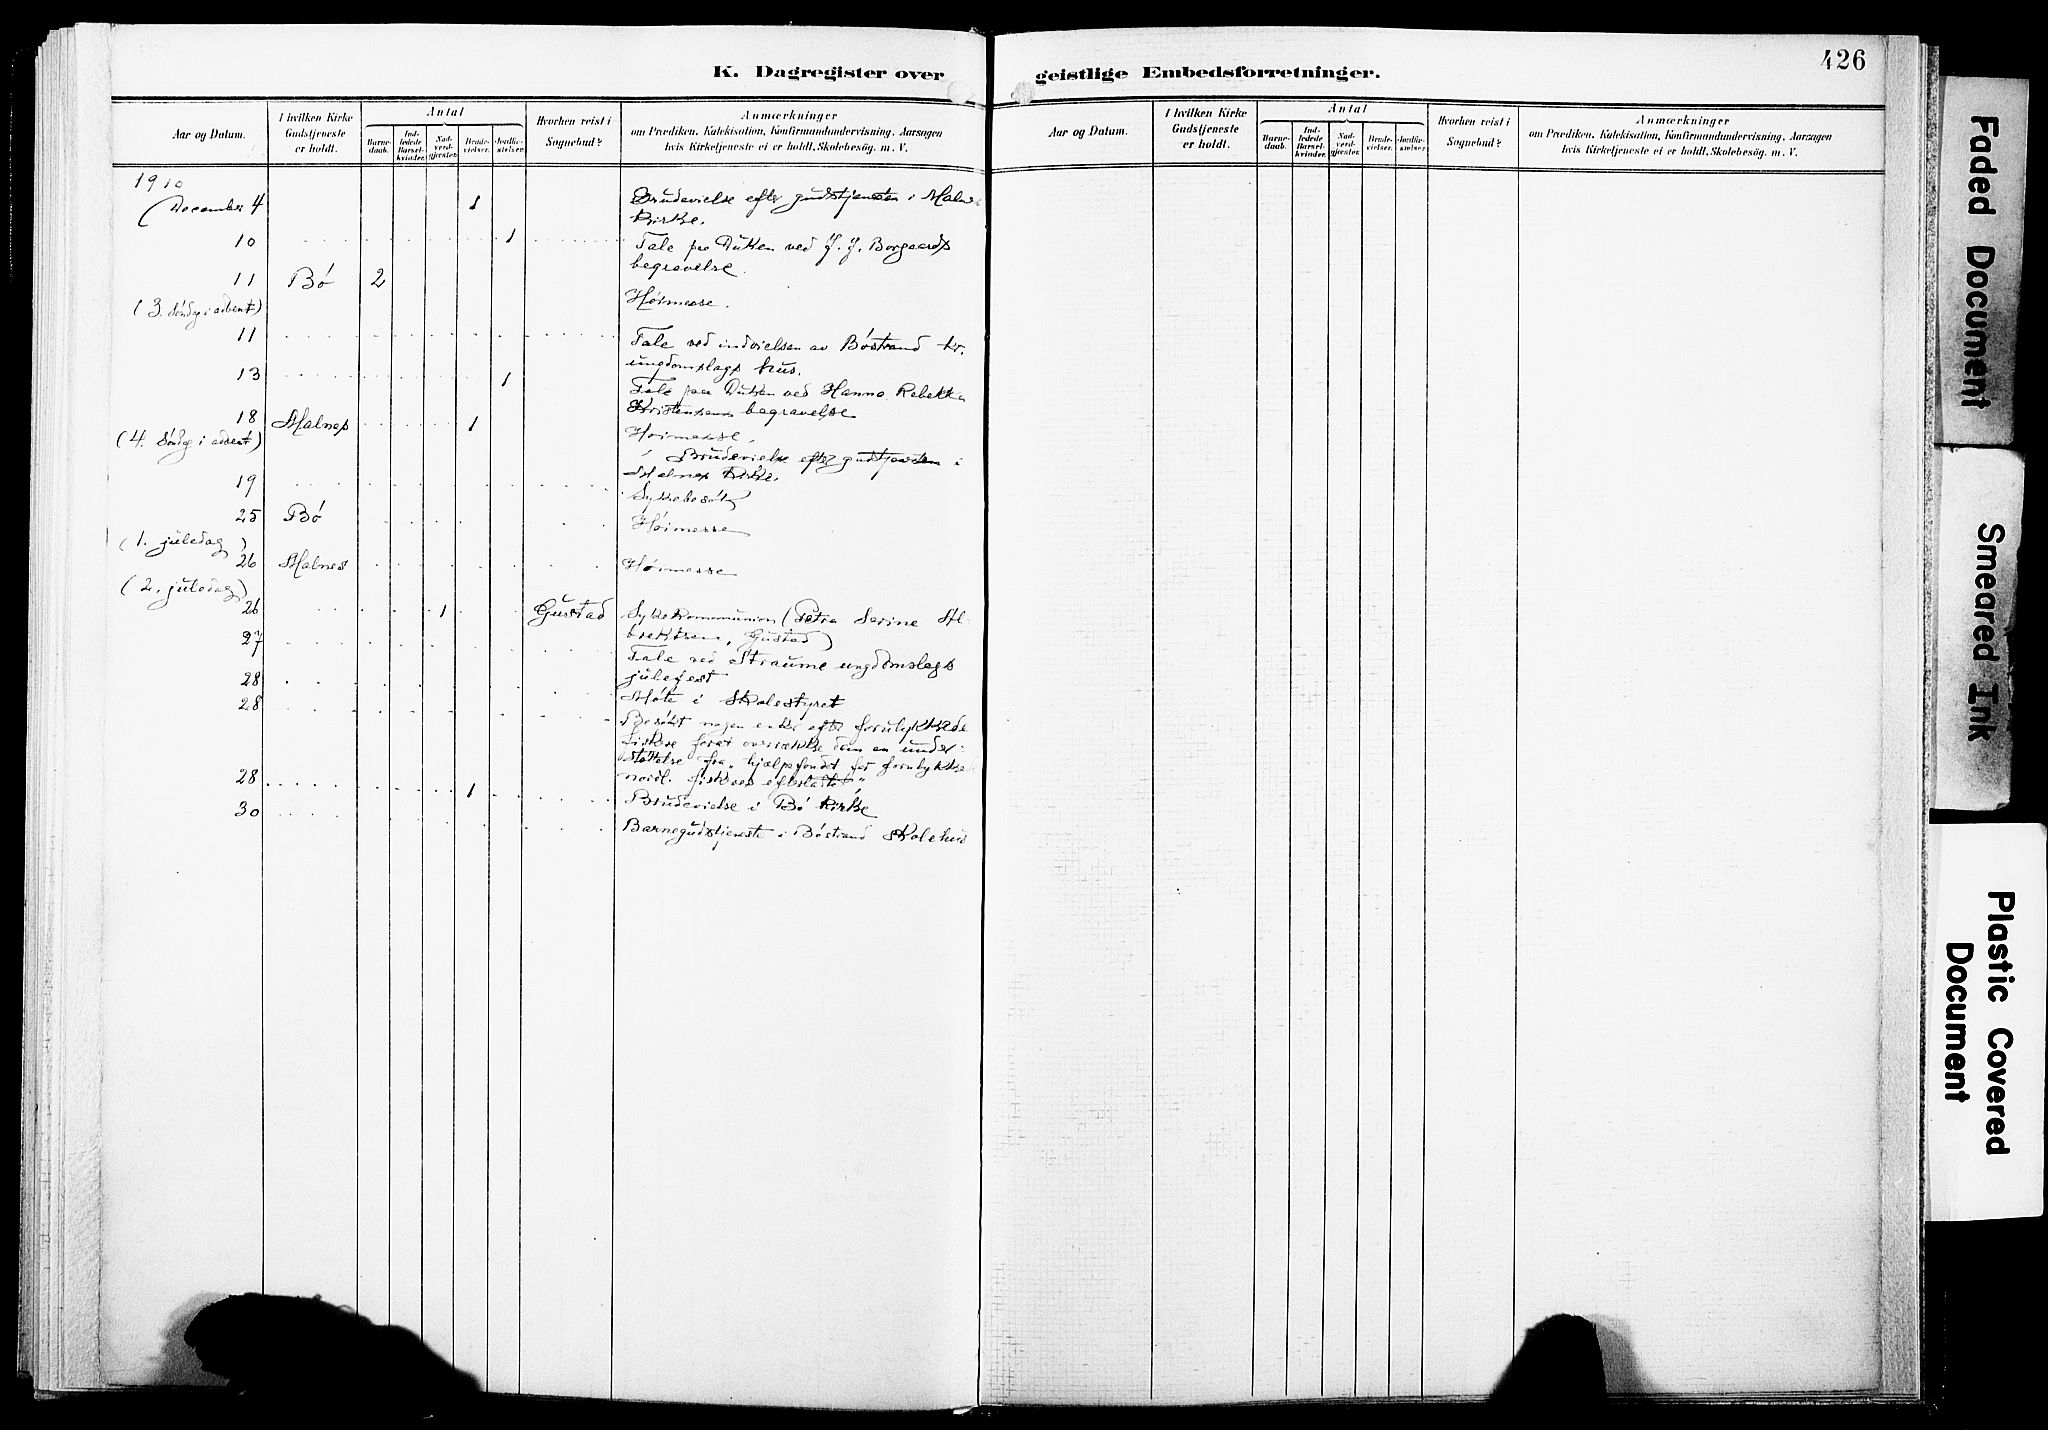 426
K. Dagregister over geistlige Embedsforretninger.
Aar og Datum. I hvilken Kirke Gudstjeneste er holdt. Antal Barnedaab. Indledede Barselkvinder. Nadverdgjæster. Brudevielser. Jordfæstelser. Hvorhen reist i Sognebud? Anmærkninger om Prædiken, Katekisation, Konfirmandundervisning, Aarsagen hvis Kirketjeneste ei er holdt, Skolebesøg. m. V.
Aar og Datum. I hvilken Kirke Gudstjeneste er holdt. Antal Barnedaab. Indledede Barselkvinder. Nadverdgjæster. Brudevielser. Jordfæstelser. Hvorhen reist i Sognebud? Anmærkninger om Prædiken, Katekisation, Konfirmandundervisning, Aarsagen hvis Kirketjeneste ei er holdt, Skolebesøg. m. V.
1910
December 4 1 Brudevielse efter gudstjenesten i Malnes
Kirke.
10 1 Tale paa Dukken ved J. J. Borgaards
begravelse.
11 Bö 2
(3. Söndg i advent) Höimesse.
11 Tale ved indvielsen av Böstrand kr.
ungdomslags hus.
13 1 Tale paa Dukken ved Hanna Rebekka
Kristensens begravelse
18 Malnes 1
(4. Söndg i advent) Höimesse.
" Brudevielse efter gudstjenesten i
Malnes Kirke.
19 Sykebesök
25 Bö Höimesse
(1. juledag)
26 Malnes Höimesse
(2. juledag)
26 1 Gustad Sykekommunion (Petra Serine Al-
brektsen, Gustad)
27 Tale ved Straume ungdomslags
julefest
28 Möte i Skolestyret
28 Besökt nogen enker efter forulykkede
fiskere forat overrække dem en under-
stöttelse fra "hjælpefondet for forulykkede
nordl. fiskeres efterlatte"
28 1 Brudevielse i Bö Kirke
30 Barnegudstjeneste i Böstrand Skolehus
Faded Document
Smeared Ink
Plastic Covered
Document